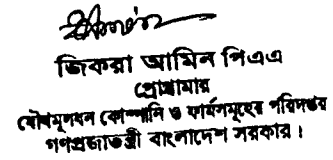 জিকরা আমিন পিএএ
প্রোগ্রামার
যৌথমূলধন কোম্পানি ও ফার্মসমূহের পরিদপ্তর
গণপ্রজাতন্ত্রী বাংলাদেশ সরকার।